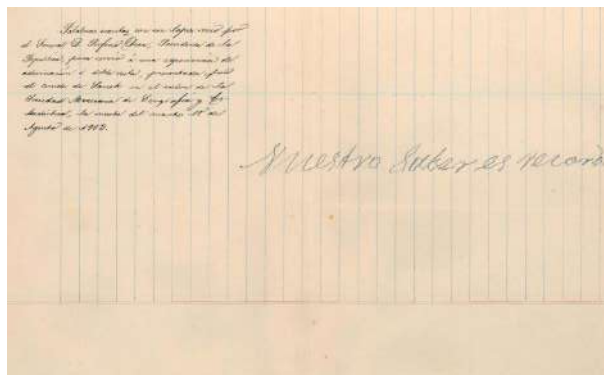 Palabras escritas con un lapiz rojo por
el General D. Porfirio Diaz, Presidente de la
República, para servir á una experiencia de
adivinación á doble vista, presentada por
el conde de Sarak en el salon de la
Sociedad Mexicana de Geografía y Es-
tadística, la noche del martes 18 de
Agosto de 1903.
Nuestro Saber es recordar